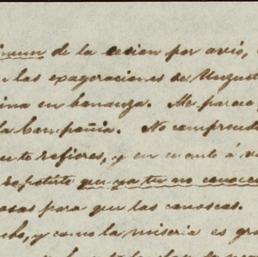 de la cesion por avio,
las exageraciones de
en bonanza. Me parece
la Compañia. No comprendo
te refieres, y en cuanto á
repetirte que ya tu no conoces
cosas para que las conozcas.
y como la miseria es